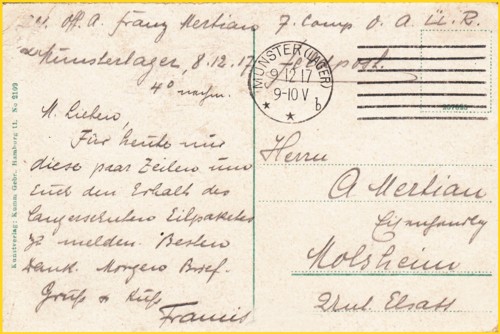 Off. A. Franz Mertian 7. Comp O. A. Ü. R.
Munsterlager, 8.12.17 Feldpost.
4° nachm.
M. Lieben,
Für heute nur
diese paar Zeilen um
Euch den Erhalt des
langersehnten Eilpaketes
zu melden. Besten
Dank. Morgen Brief.
Gruß & Kuß
MUNSTER (LAGER)
9.12.17
9-10 V
b
Herrn
A Mertian
Molsheim
Elsass
Kunstverlag: Kumm. Gebr. Hamburg 11. No 2109